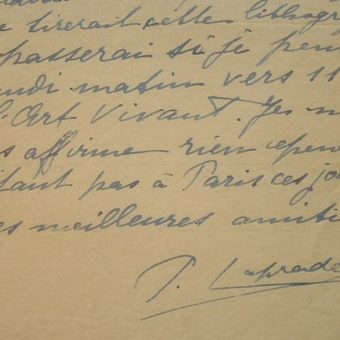 tirerait cette lithogr
passerai si je peu
udi matin vers 11
l'Art Vivant. Je n
s affirme rien epen
tant pas à Paris ces jo
es meilleures amiti
P. Laprade